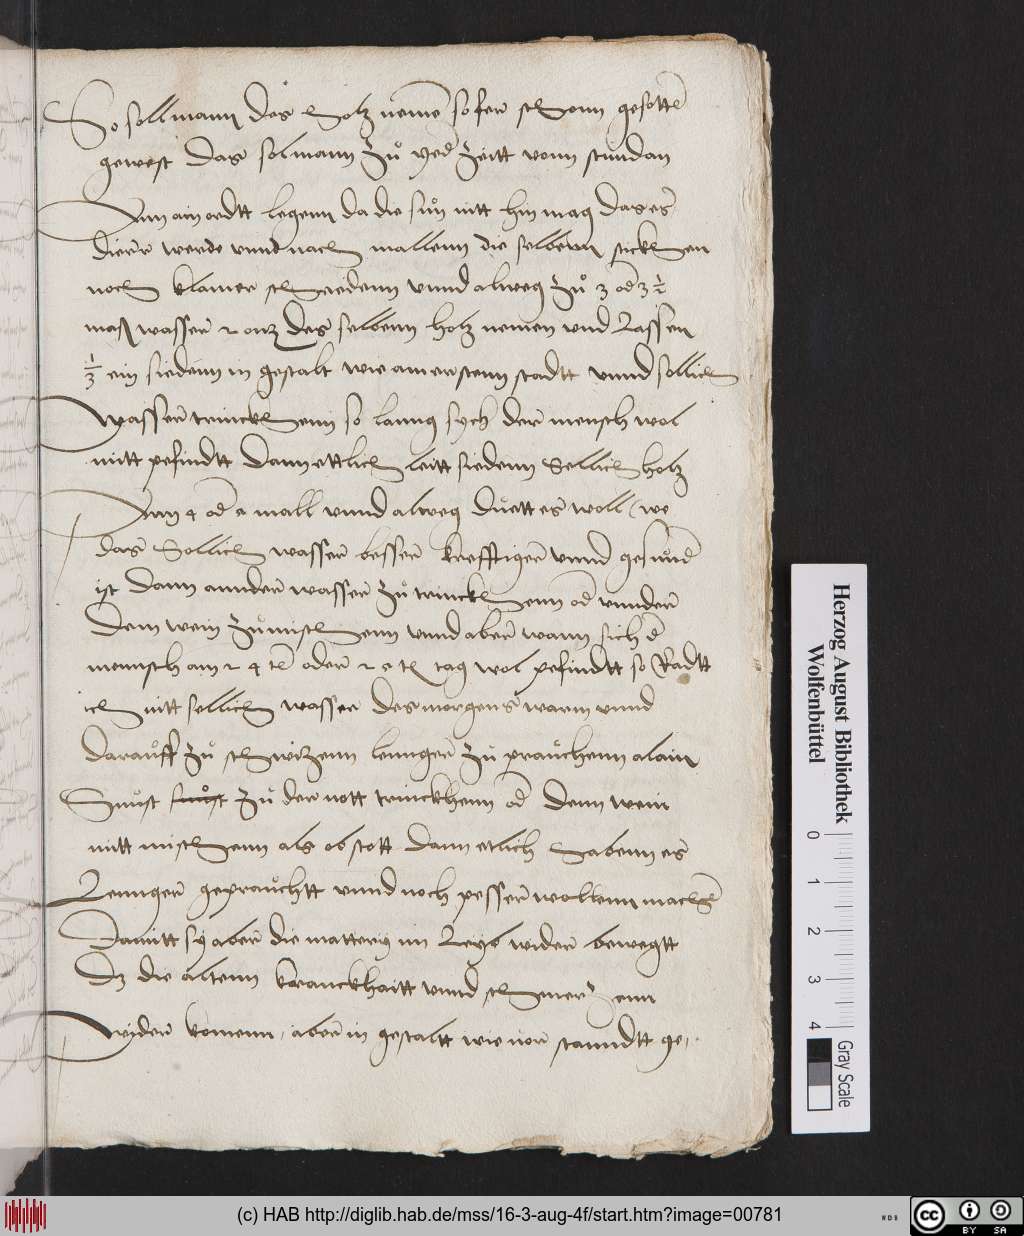 So soll mann des holz nemē so fer schonn gesottē
gewest das sol mann zů yed zeitt vonn stundan
Ann ain ordtt legenn da die sůn nitt hin mag das es
dierr werde vnnd nach mallenn die selbenn stickhen
noch klainer schneidenn vnnd alweg zů 3 od 3 ½
maß wasser 1 onz des selbenn holz nemen vnd Lassen
⅓ ein siedenn in gestalt wie am erstenn stadtt vnnd sollich
wasser trinckhenn so lanng sych der mensch wol
mitt pefindtt dann ettlich leitt siedenn Sollich holz
Ann 4 od 5 mall vnnd alweg důett es woll / wo
das Sollich wasser besser krefftiger vnnd gesůnd
ist dann annder wasser zů trinckhenn od vnnder
dem wein zůmischenn vnnd aber wann sich d
mennsch am 14 tē oder 15 tē tag wol pefindtt so Radtt
ich nitt sollich wasser des morgens warm vnnd
darauff zů schwizenn lennger zů prauchenn alain
Sunst zů der nott trinckhenn od denn wein
mitt mischenn als ob stett dann etlich habenn es
Lennger geprauchtt vnnd noch pesser wollenn machē
Damitt sy aber die mattery im Leyb wider bewegtt
Dz die altenn kranckhaitt vnnd schmerzenn
wider komenn, aber in gestaltt wie vor stanndtt ge,
Herzog August Bibliothek
Wolfenbüttel
0 1 2 3 4
Gray Scale
(c) HAB http://diglib.hab.de/mss/16-3-aug-4f/start.htm?image=00781
WDB
cc BY SA